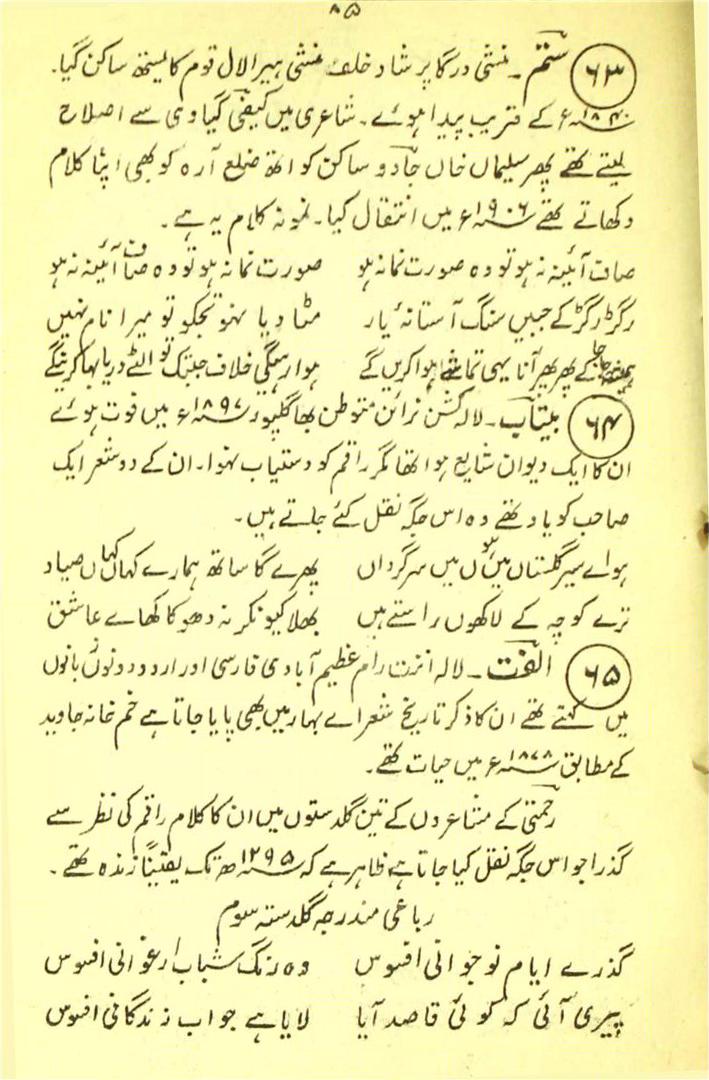 ۸۵
۶۳ ستم۔ منشی درگا پرشاد خلف منشی ہیرا لال قوم کایستھ ساکن گیا۔
۱۸۴۰ء کے قریب پیدا ہوئے۔ شاعری میں کیفی گیاوی سے اصلاح
لیتے تھے پھر سلیماں خاں جادو ساکن کواتھ ضلع آرہ کو بھی اپنا کلام
دکھاتے تھے ۱۹۰۶ء میں انتقال کیا۔ نمونہ کلام یہ ہے۔
صاف آئینہ نہ ہو تو وہ صورت نما نہ ہو صورت نما نہ ہو تو وہ صاف آئینہ نہ ہو
رگڑ رگڑ کے جبیں سنگ آستانۂ یار مٹا دیا نہو تجکو تو میرا نام نہیں
ہمیشہ جا جا کے پھر پھر آنا یہی تماشے ہوا کریں گے ہوا رہیگی خلاف جبتک تو الٹے دریا بہا کرینگے
۶۴ بیتاب۔ لالہ کشن نرائن متوطن بھاگلپور ۱۸۹۷ء میں فوت ہوئے
ان کا ایک دیوان شایع ہوا تھا مگر راقم کو دستیاب نہوا۔ ان کے دو شعر ایک
صاحب کو یاد تھے وہ اس جگہ نقل کئے جاتے ہیں۔
ہوائے سیر گلستاں میں ہوں میں سرگرداں پھرے گا ساتھ ہمارے کہاں کہاں صیاد
ترے کوچہ کے لاکھوں راستے ہیں بھلا کیونکر نہ دھوکا کھاے عاشق
۶۵ الفت۔ لالہ انرت رام عظیم آبادی فارسی اور اردو دونوں زبانوں
میں کہتے تھے ان کا ذکر تاریخ شعراے بہار میں بھی پایا جاتا ہے خم خانہ جاوید
کے مطابق ۱۸۷۸ء میں حیات تھے۔
رحمتی کے مشاعروں کے تین گلدستوں میں ان کا کلام راقم کی نظر سے
گذرا جو اس جگہ نقل کیا جاتا ہے ظاہر ہے کہ ۱۲۹۵ھ تک یقیناً زندہ تھے۔
رباعی مندرجہ گلدستہ سوم
گذرے ایام نوجوانی افسوس وہ رنگ شباب ارغوانی افسوس
پیری آئی کہ کوئی قاصد آیا لایا ہے جواب زندگانی افسوس